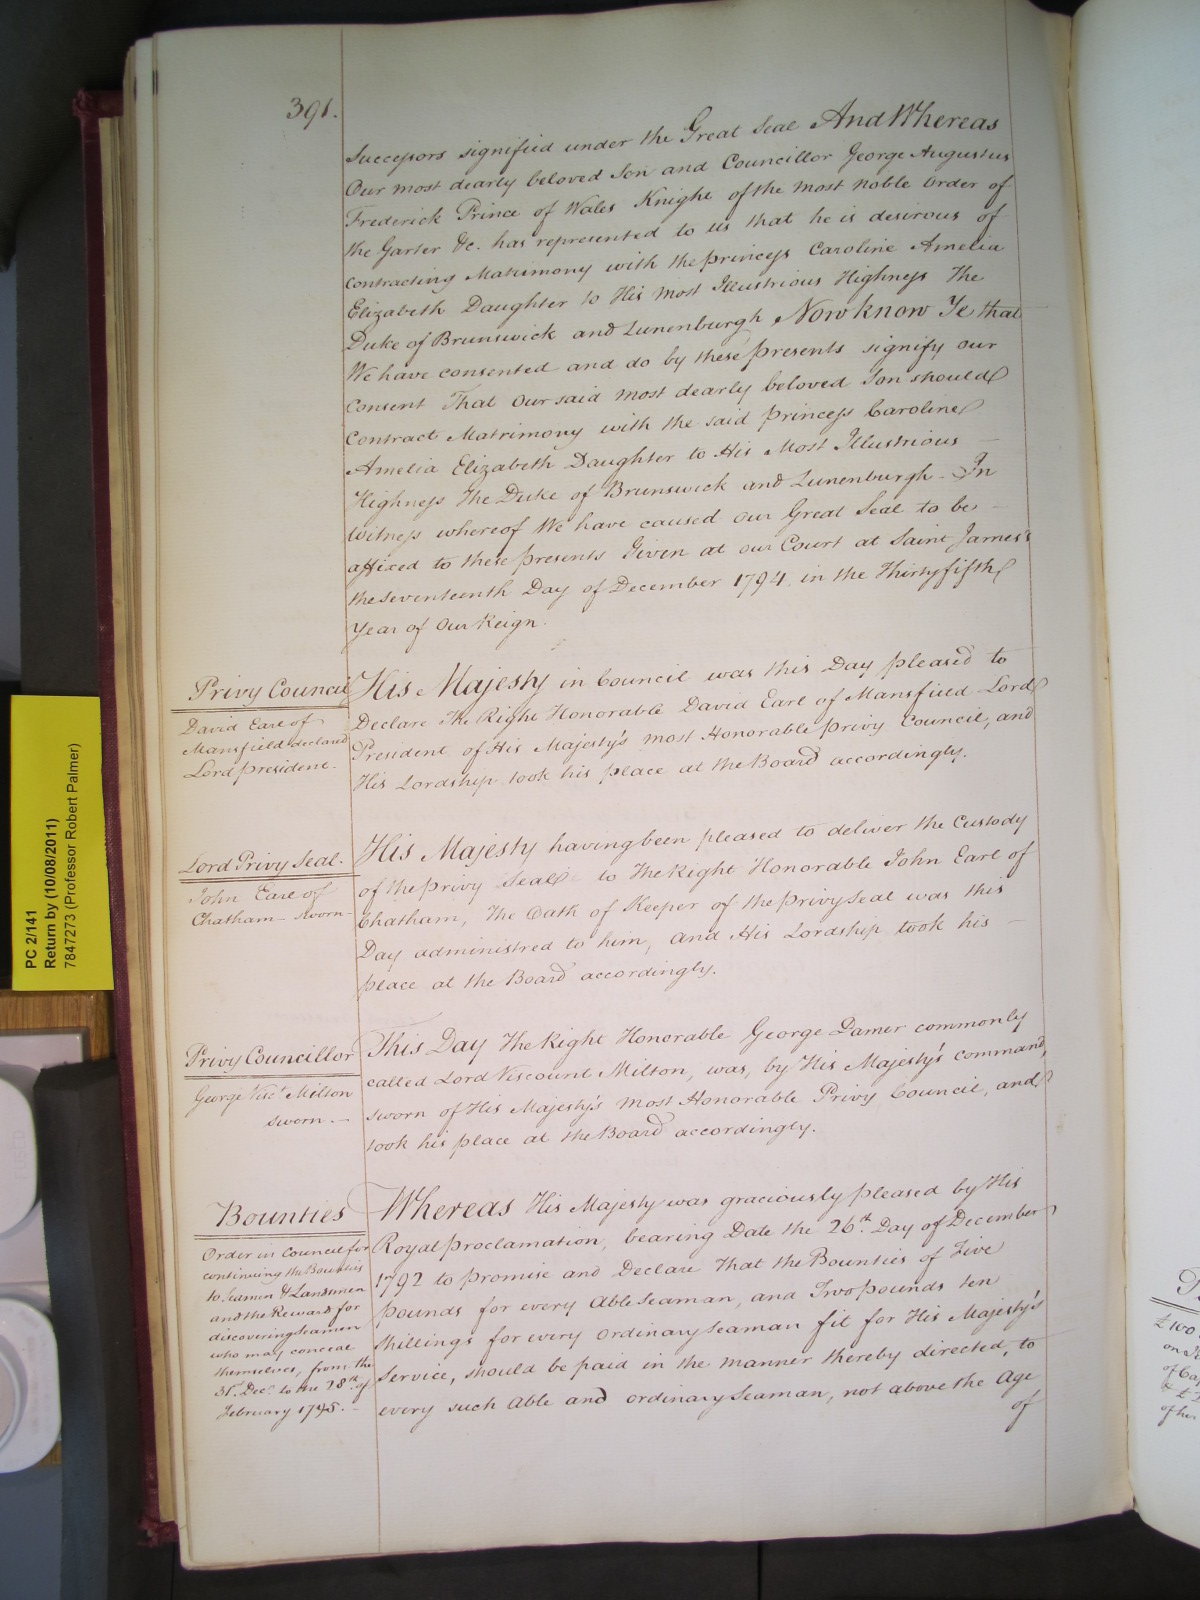 391.
Successors signified under the Great Seal And Whereas
Our most dearly beloved Son and Councillor George Augustus
Frederick Prince of Wales Knight of the most noble Order of
the Garter &c. has represented to us that he is desirous of
contracting Matrimony with the princess Caroline Amelia
Elizabeth Daughter to His Most Illustrious Highness The
Duke of Brunswick and Lunenburgh Now know Ye that
We have consented and do by these presents signify our
Consent That our said most dearly beloved Son should
Contract Matrimony with the said princess Caroline
Amelia Elizabeth Daughter to His Most Illustrious
Highness The Duke of Brunswick and Lunenburgh - In
Witness whereof We have caused our Great Seal to be
affixed to these presents Given at our Court at Saint James's
the seventeenth Day of December 1794. in the Thirty fifth
Year of our Reign.
Privy Council
David Earl of
Mansfield declared
Lord president.
His Majesty in Council was this Day pleased to
Declare The Right Honorable David Earl of Mansfield Lord
President of His Majesty's most Honorable privy Council, and
His Lordship took his place at the Board accordingly.
Lord Privy Seal.
John Earl of
Chatham - sworn -
His Majesty having been pleased to deliver the Custody
of the privy Seal to The Right Honorable John Earl of
Chatham, The Oath of Keeper of the privy Seal was this
Day administred to him, and His Lordship took his -
place at the Board accordingly.
Privy Councillor
George Visct. Milton
sworn. -
This Day The Right Honorable George Damer commonly
called Lord Viscount Milton, was, by His Majesty's command,
sworn of His Majesty's most Honorable Privy Council, and
took his place at the Board accordingly.
Bounties
Order in Council for
continuing the Bounties
to Seamen & Landsmen
and the Reward for
discovering Seamen
who may conceal
themselves, from the
31st. Decr. to the 28th. of
February 1795. -
Whereas His Majesty was graciously pleased by His
Royal proclamation, bearing Date the 26th. Day of December
1792 to promise and Declare That the Bounties of Five
pounds for every Able Seaman, and Two pounds ten
shillings for every ordinary Seaman fit for His Majesty's
Service, should be paid in the manner thereby directed, to
every such Able and ordinary Seaman, not above the Age
of
PC 2/141
Return by (10/08/2011)
7847273 (Professor Robert Palmer)
£100